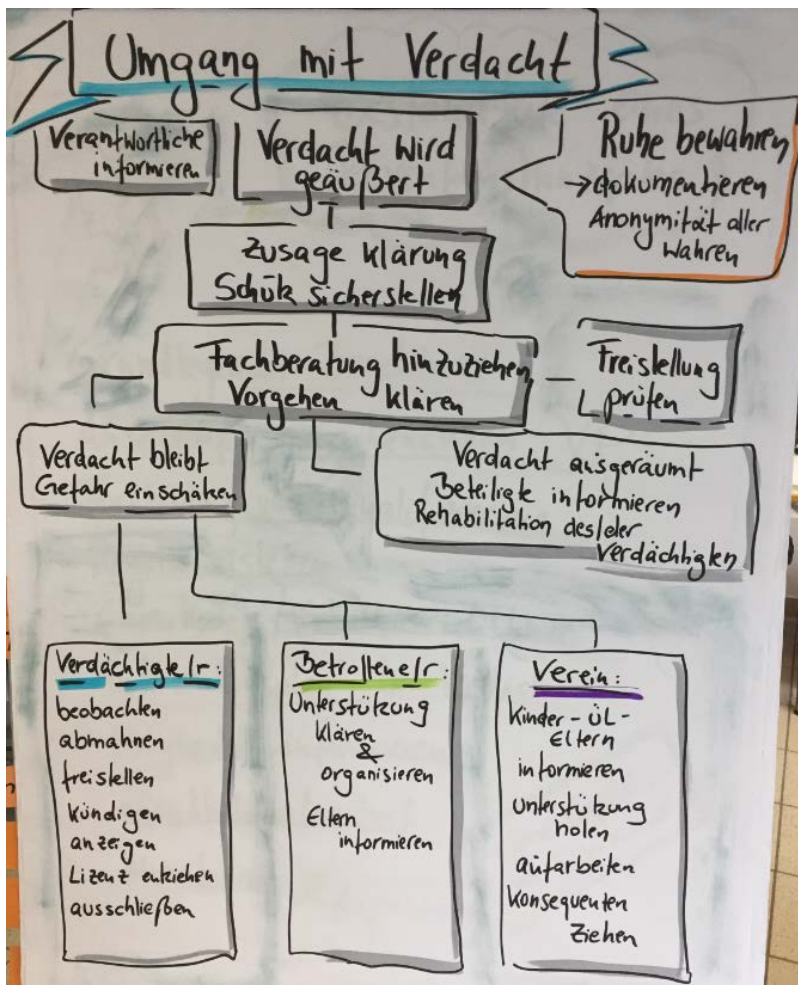 Umgang mit Verdacht
Verantwortliche
informieren
Verdacht wird
geäußert
Ruhe bewahren
→ dokumentieren
Anonymität aller
wahren
Zusage Klärung
Schutz sicherstellen
Fachberatung hinzuziehen
Vorgehen klären
Freistellung
prüfen
Verdacht bleibt
Gefahr einschätzen
Verdacht ausgeräumt
Beteiligte informieren
Rehabilitation des/der
Verdächtigten
Verdächtigte/r:
beobachten
abmahnen
freistellen
kündigen
anzeigen
Lizenz entziehen
ausschließen
Betroffene/r:
Unterstützung
klären
&
organisieren
Eltern
informieren
Verein:
Kinder - ÜL -
Eltern
informieren
Unterstützung
holen
aufarbeiten
Konsequenten
ziehen